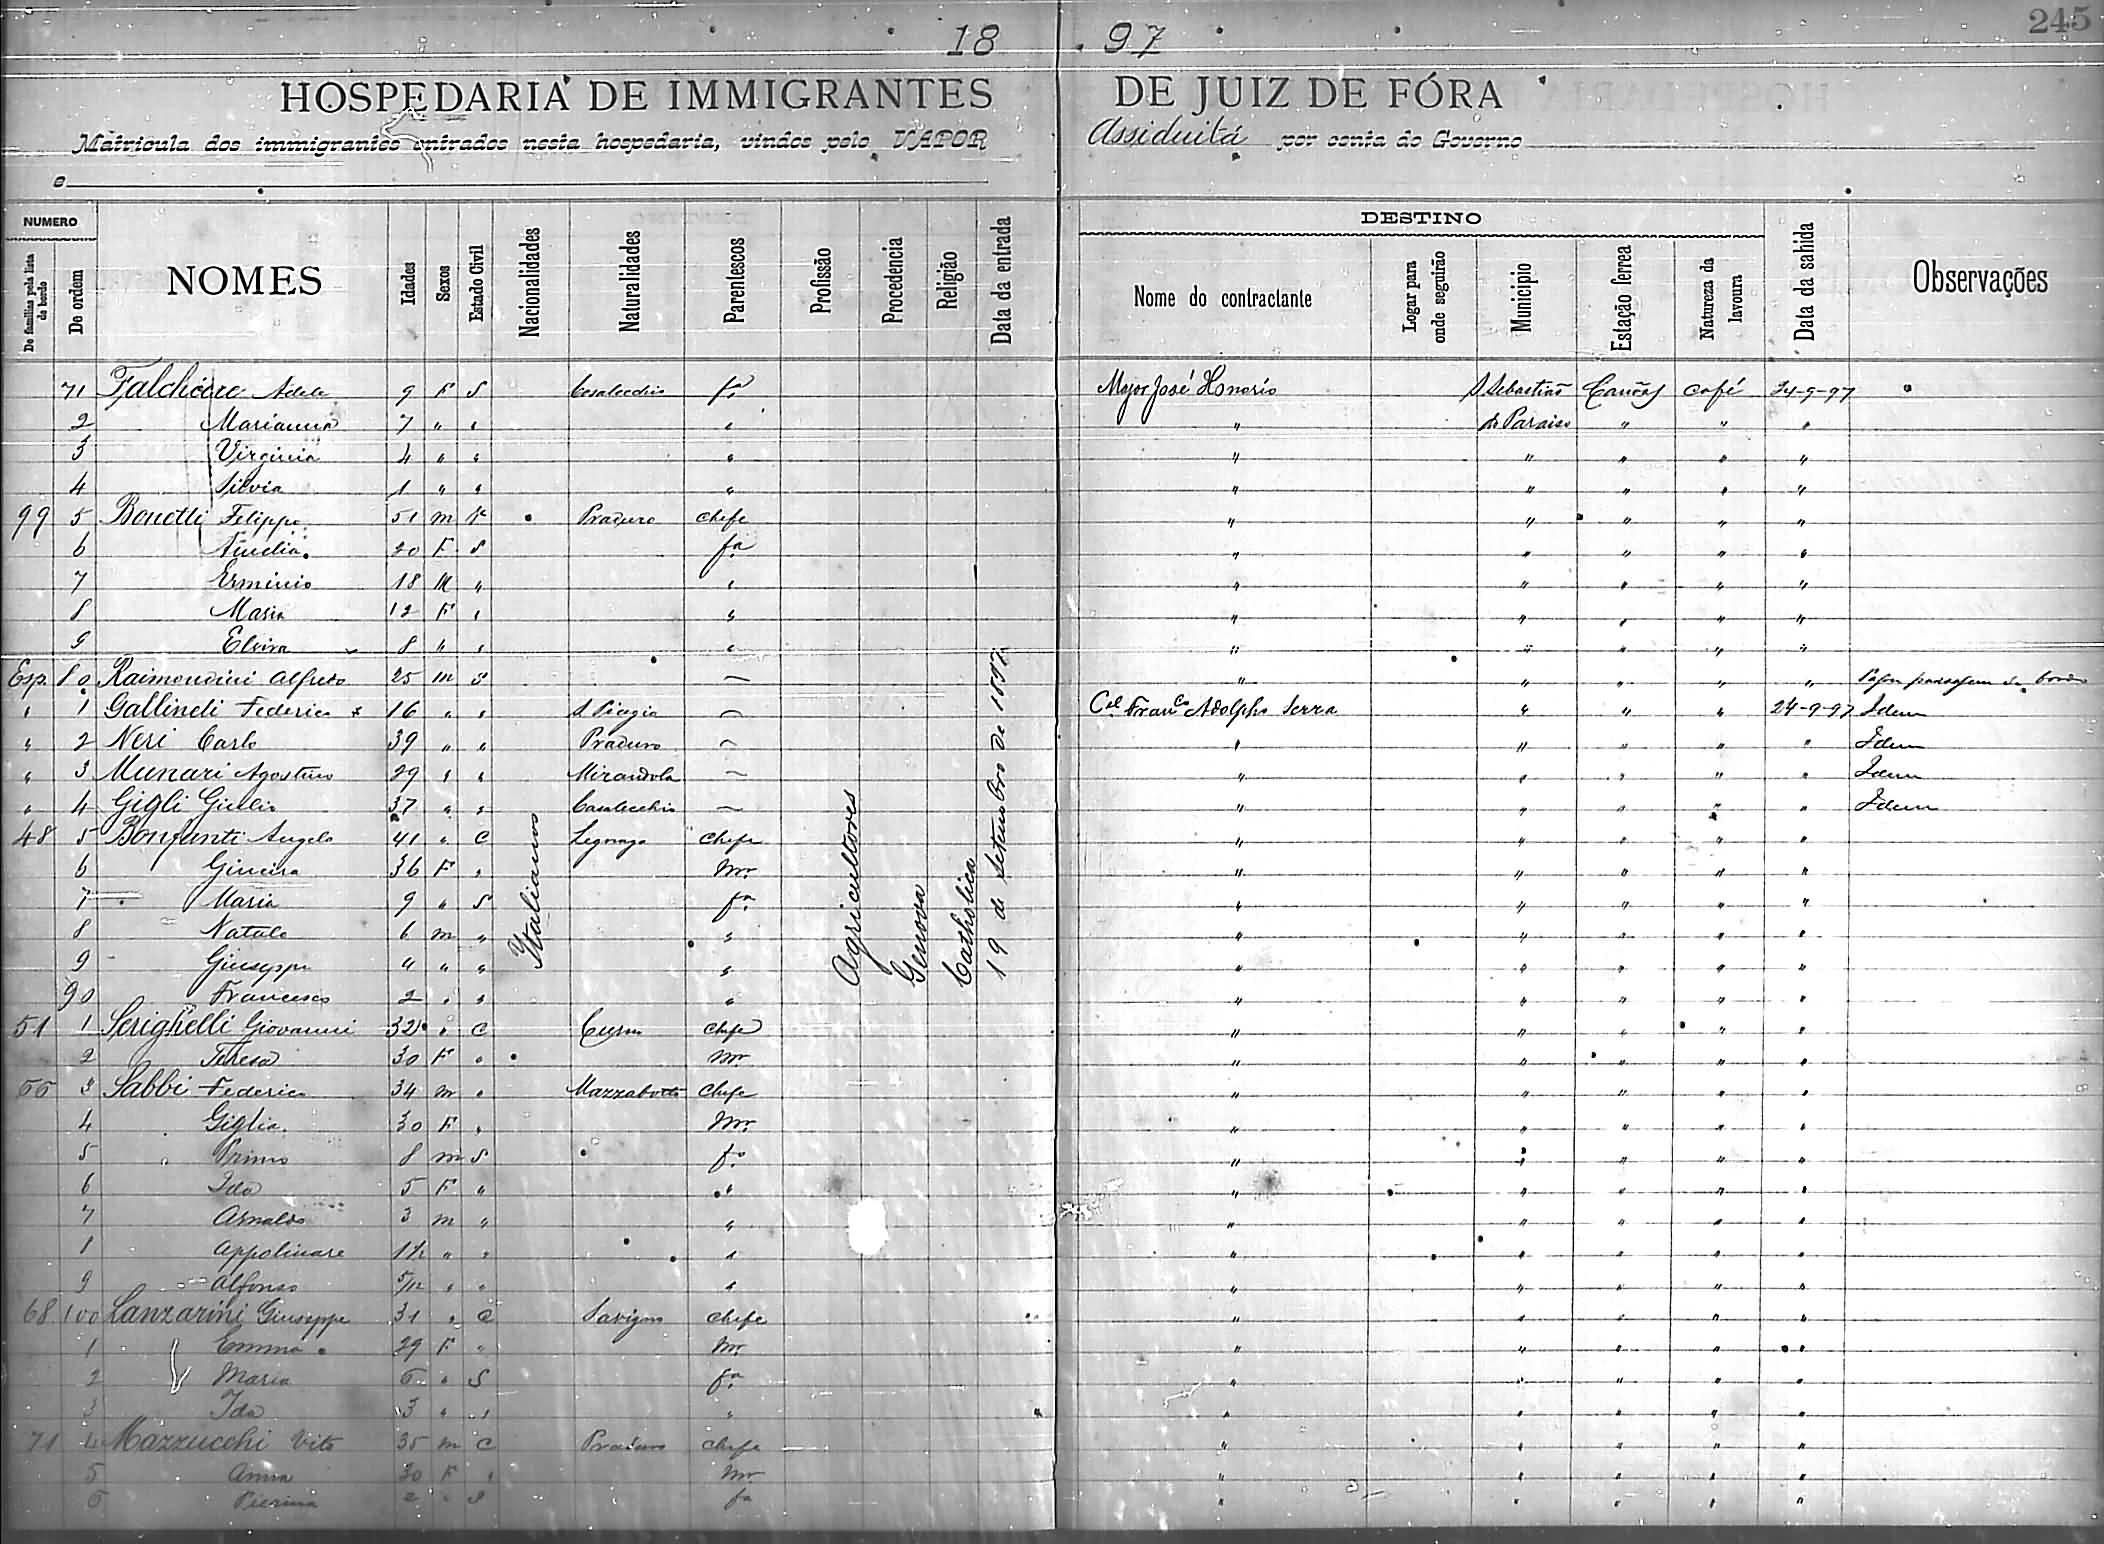 245
18 97
HOSPEDARIA DE IMMIGRANTES DE JUIZ DE FÓRA
Matricula dos immigrantes entrados nesta hospedaria, vindos pelo VAPOR Assiduitá por conta do Governo
e
NUMERO DESTINO
De familias pela lista de bordo De ordem NOMES Idades Sexos Estado Civil Nacionalidades Naturalidades Parentescos Profissão Procedencia Religião Data da entrada Nome do contractante Logar para onde seguirão Municipio Estação ferrea Natureza da lavoura Data da sahida Observações
71 Adele 9 F S Casalecchio fa Major José Honorio S. Sebastião café 24-9-97
2 Marianna 7 " " " " do Paraiso " " "
3 Virginia 4 " " " " " " " "
4 Silvia 1 " " " " " " " "
99 5 Bonetti Filippo 51 m V Praduro chefe " " " " "
6 20 F S fa " " " " "
7 Erminio 18 M " " " " " " "
8 Maria 12 F " " " " " " "
9 Elvira 8 " " " " " " " "
Esp. 80 Raimondini Alfredo 25 m S — " " " " " passagem de bordo
" 1 Federico 16 " " — Cel Franco Adolpho Serra " " " 24-9-97 Idem
" 2 Neri Carlo 39 " " Praduro — " " " " " Idem
" 3 Munari Agostino 29 " " Mirandola — " " " " " Idem
" 4 Gigli Giulio 37 " " Casalecchio — " " " " " Idem
48 5 Bonfanti Angelo 41 " C Legnago Chefe " " " " "
6 Ginevra 36 F " Mr. " " " " "
7 Maria 9 " S fa " " " " "
8 Natale 6 m " " " " " " "
9 Giuseppe " " " " " " " " "
90 Francesco 2 " " " " " " " "
51 1 Serighelli Giovanni 32 " C chefe " " " " "
2 Teresa 30 F " Mr. " " " " "
3 Sabbi Federico 34 m " Mazzabotto Chefe " " " " "
4 Giglia 30 F " Mr. " " " " "
5 Primo 8 m S fo " " " " "
6 Ida 5 F " " " " " " "
7 Arnaldo 3 m " " " " " " "
Appolinare 1½ " " " " " " " "
9 Alfonso 5/12 " " " " " " " "
68 100 Lanzarini Giuseppe 31 " C Savigno chefe " " " " "
1 Emma 29 F " Mr. " " " " "
2 Maria 6 " S fa " " " " "
3 Ida 3 " " " " " " " "
71 4 Mazzucchi Vito 35 m C Praduro chefe " " " " "
5 Anna 30 F " Mr " " " " "
6 Pierina 2 " S fa " " " " "
Italianos
Agricultores
Genova
Catholica
19 de Setembro de 1897